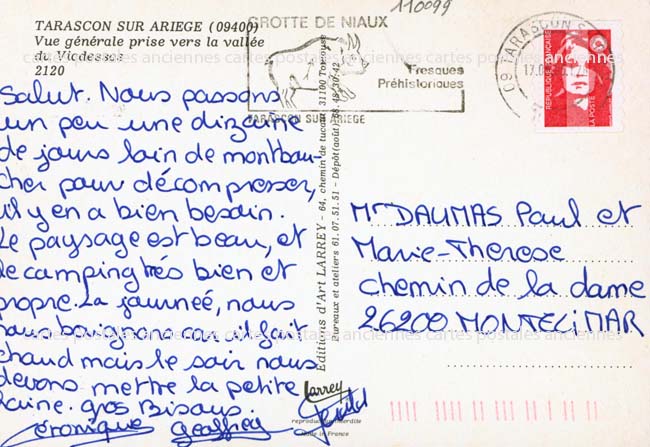 110099
TARASCON SUR ARIEGE (09400)
Vue générale prise vers la vallée
du Vicdessos
2120
GROTTE DE NIAUX
Fresques
Préhistoriques
TARASCON SUR ARIEGE
09 TARASCON S
17.0
REPUBLIQUE FRANÇAISE
LA POSTE
cartes postales anciennes
Salut. Nous passons
un peu une dizaine
de jours loin de montbou-
cher pour décompresser,
il y en a bien besoin.
Le paysage est beau, et
le camping très bien et
propre. La journeé, nous
nous baignons car il fait
chaud mais le soir nous
devons mettre la petite
laine. gros Bisous.
Véronique Geoffrey
Editions d'Art LARREY - 64, chemin de tucaut 31100 Toulouse
Bureaux et ateliers 61.07.51.51 - Dépôt (août) 68.48.30.42
larrey
reproduction interdite
Made in France
Mr DAUMAS Paul et
Marie-Therese
chemin de la dame
26200 MONTELiMAR